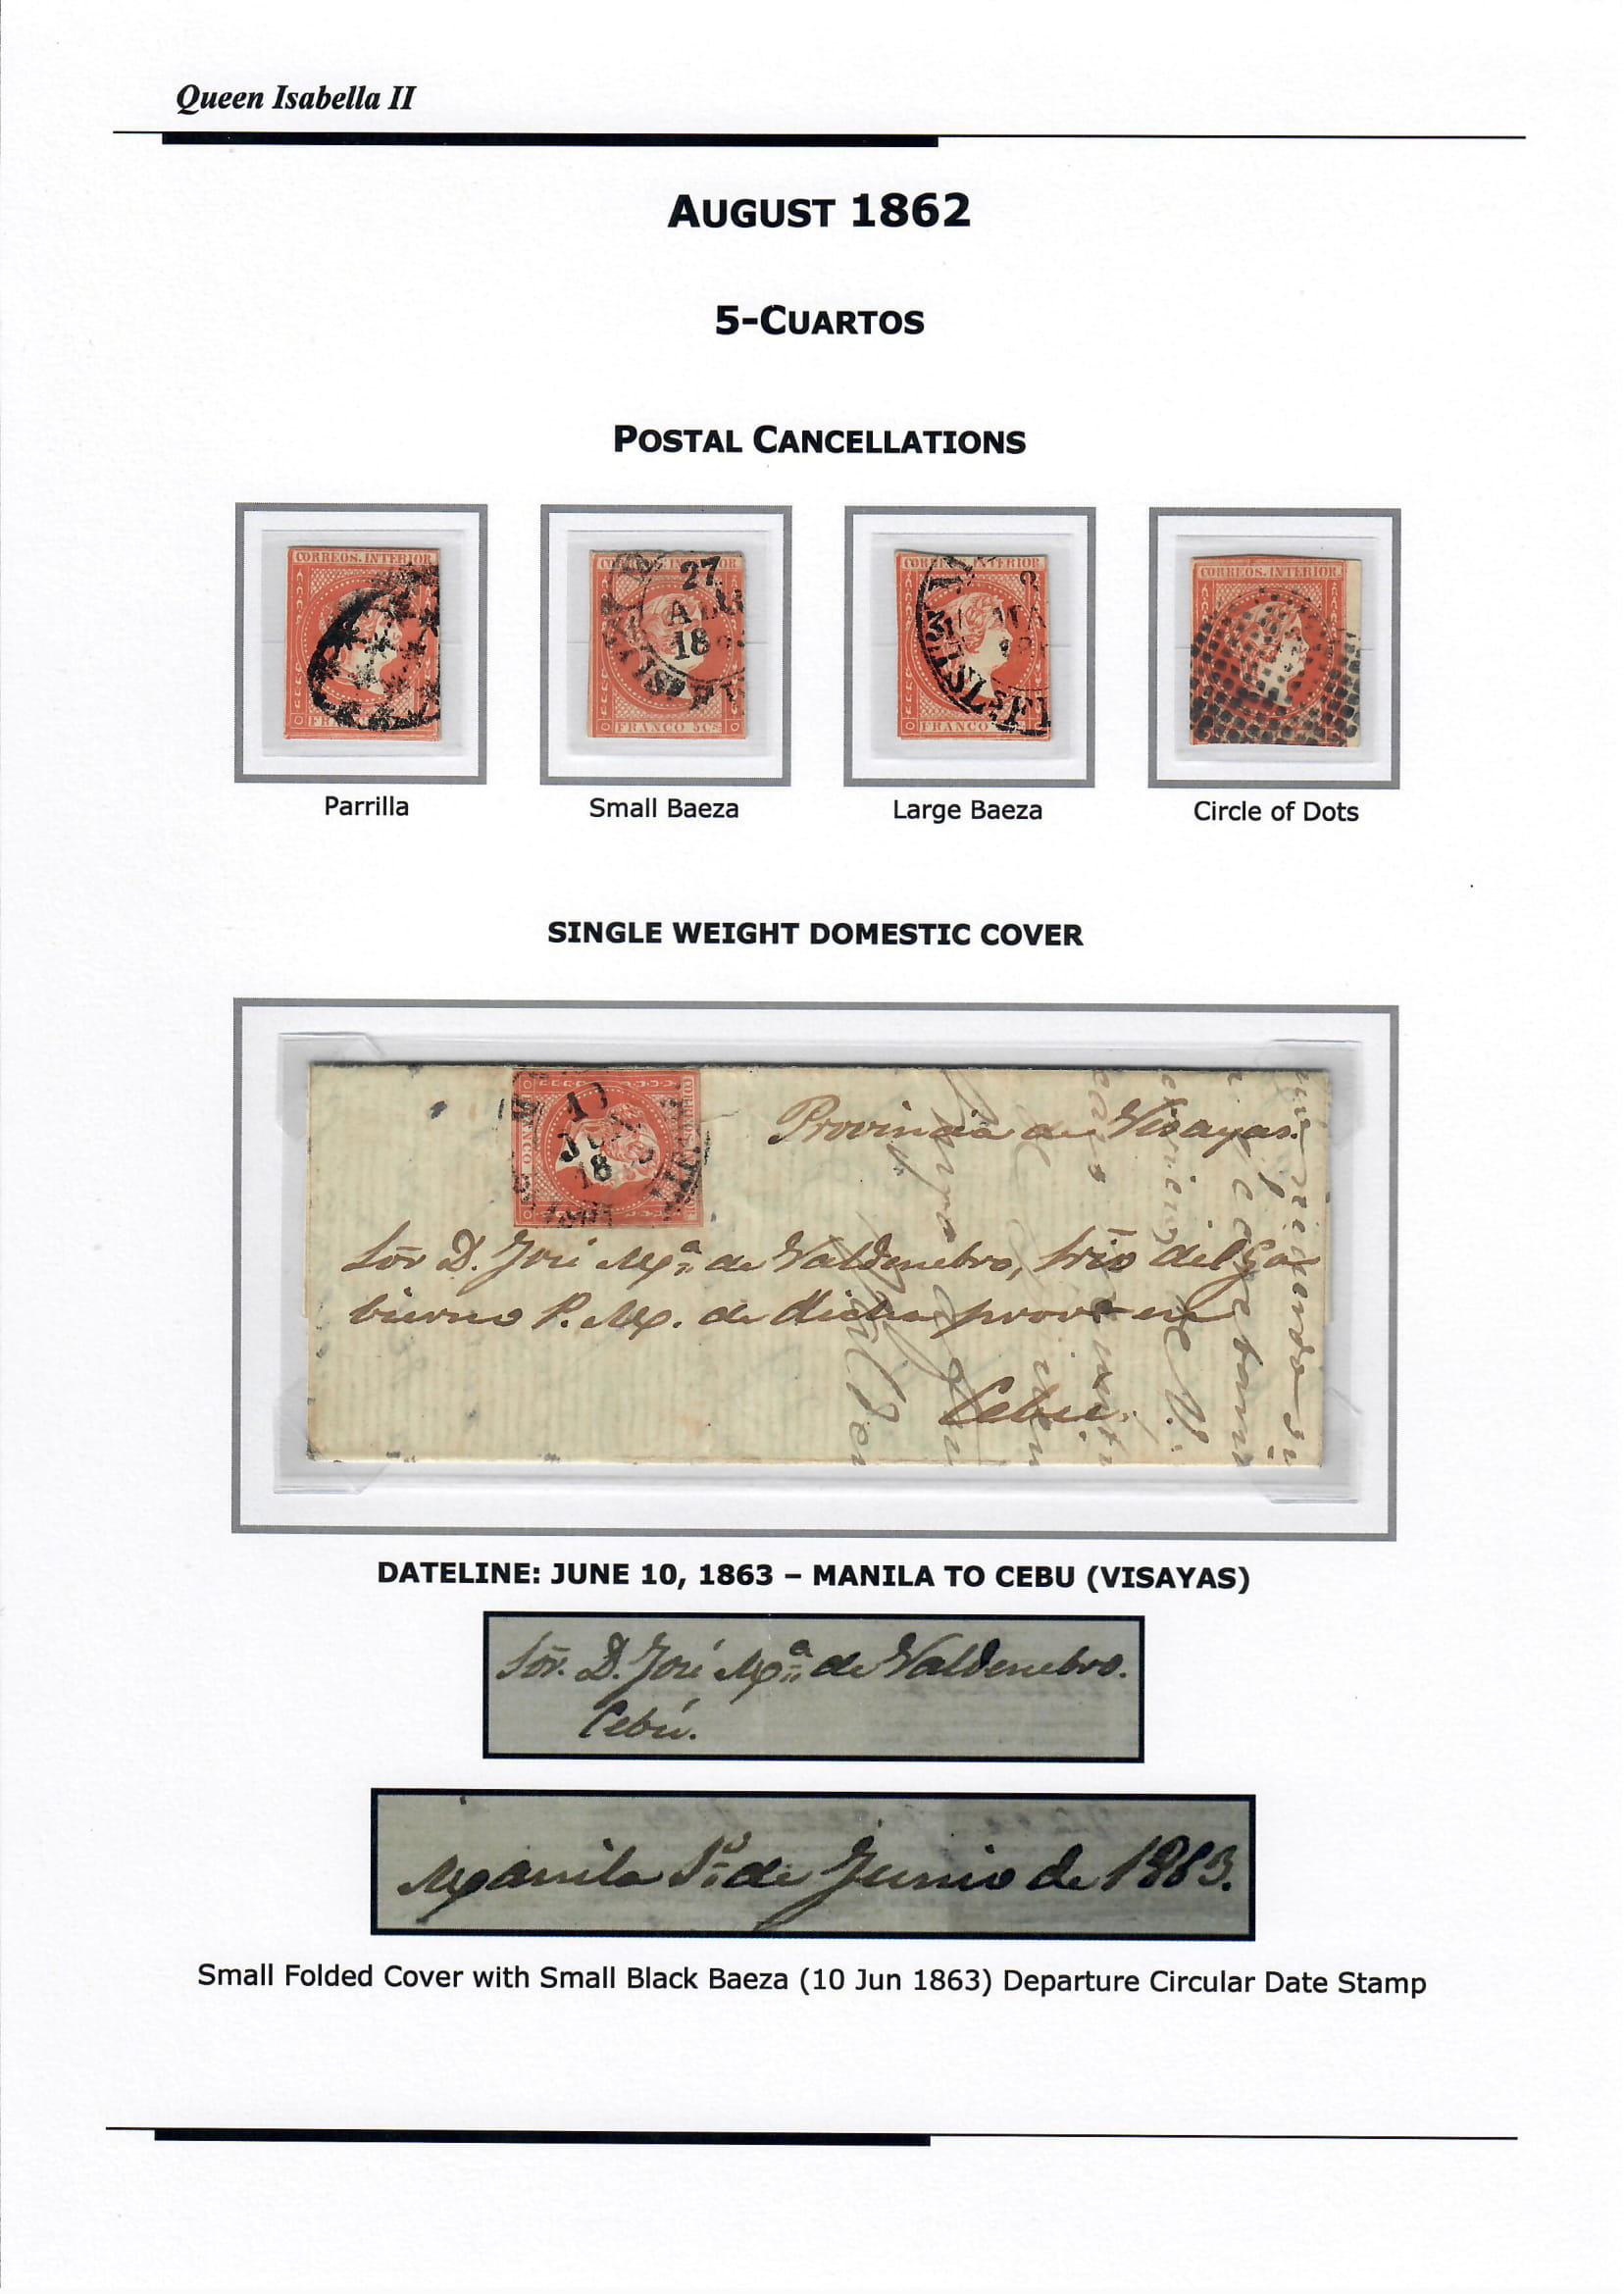 Queen Isabella II
AUGUST 1862
5-CUARTOS
POSTAL CANCELLATIONS
CORREOS. INTERIOR
FR
CORREOS. INTERIOR
27
18
FRANCO 5Cs
CORREOS. INTERIOR
FRANCO
CORREOS. INTERIOR
Parrilla
Small Baeza
Large Baeza
Circle of Dots
SINGLE WEIGHT DOMESTIC COVER
JUN
18
Provincia de Visayas.
Sõr D. José Mª de Valdenebro, Srio del Go
bierno P. M. de dicha provª en
Cebú.
DATELINE: JUNE 10, 1863 – MANILA TO CEBU (VISAYAS)
Sõr. D. José Mª de Valdenebro.
Cebú.
Manila de Junio de 1863.
Small Folded Cover with Small Black Baeza (10 Jun 1863) Departure Circular Date Stamp